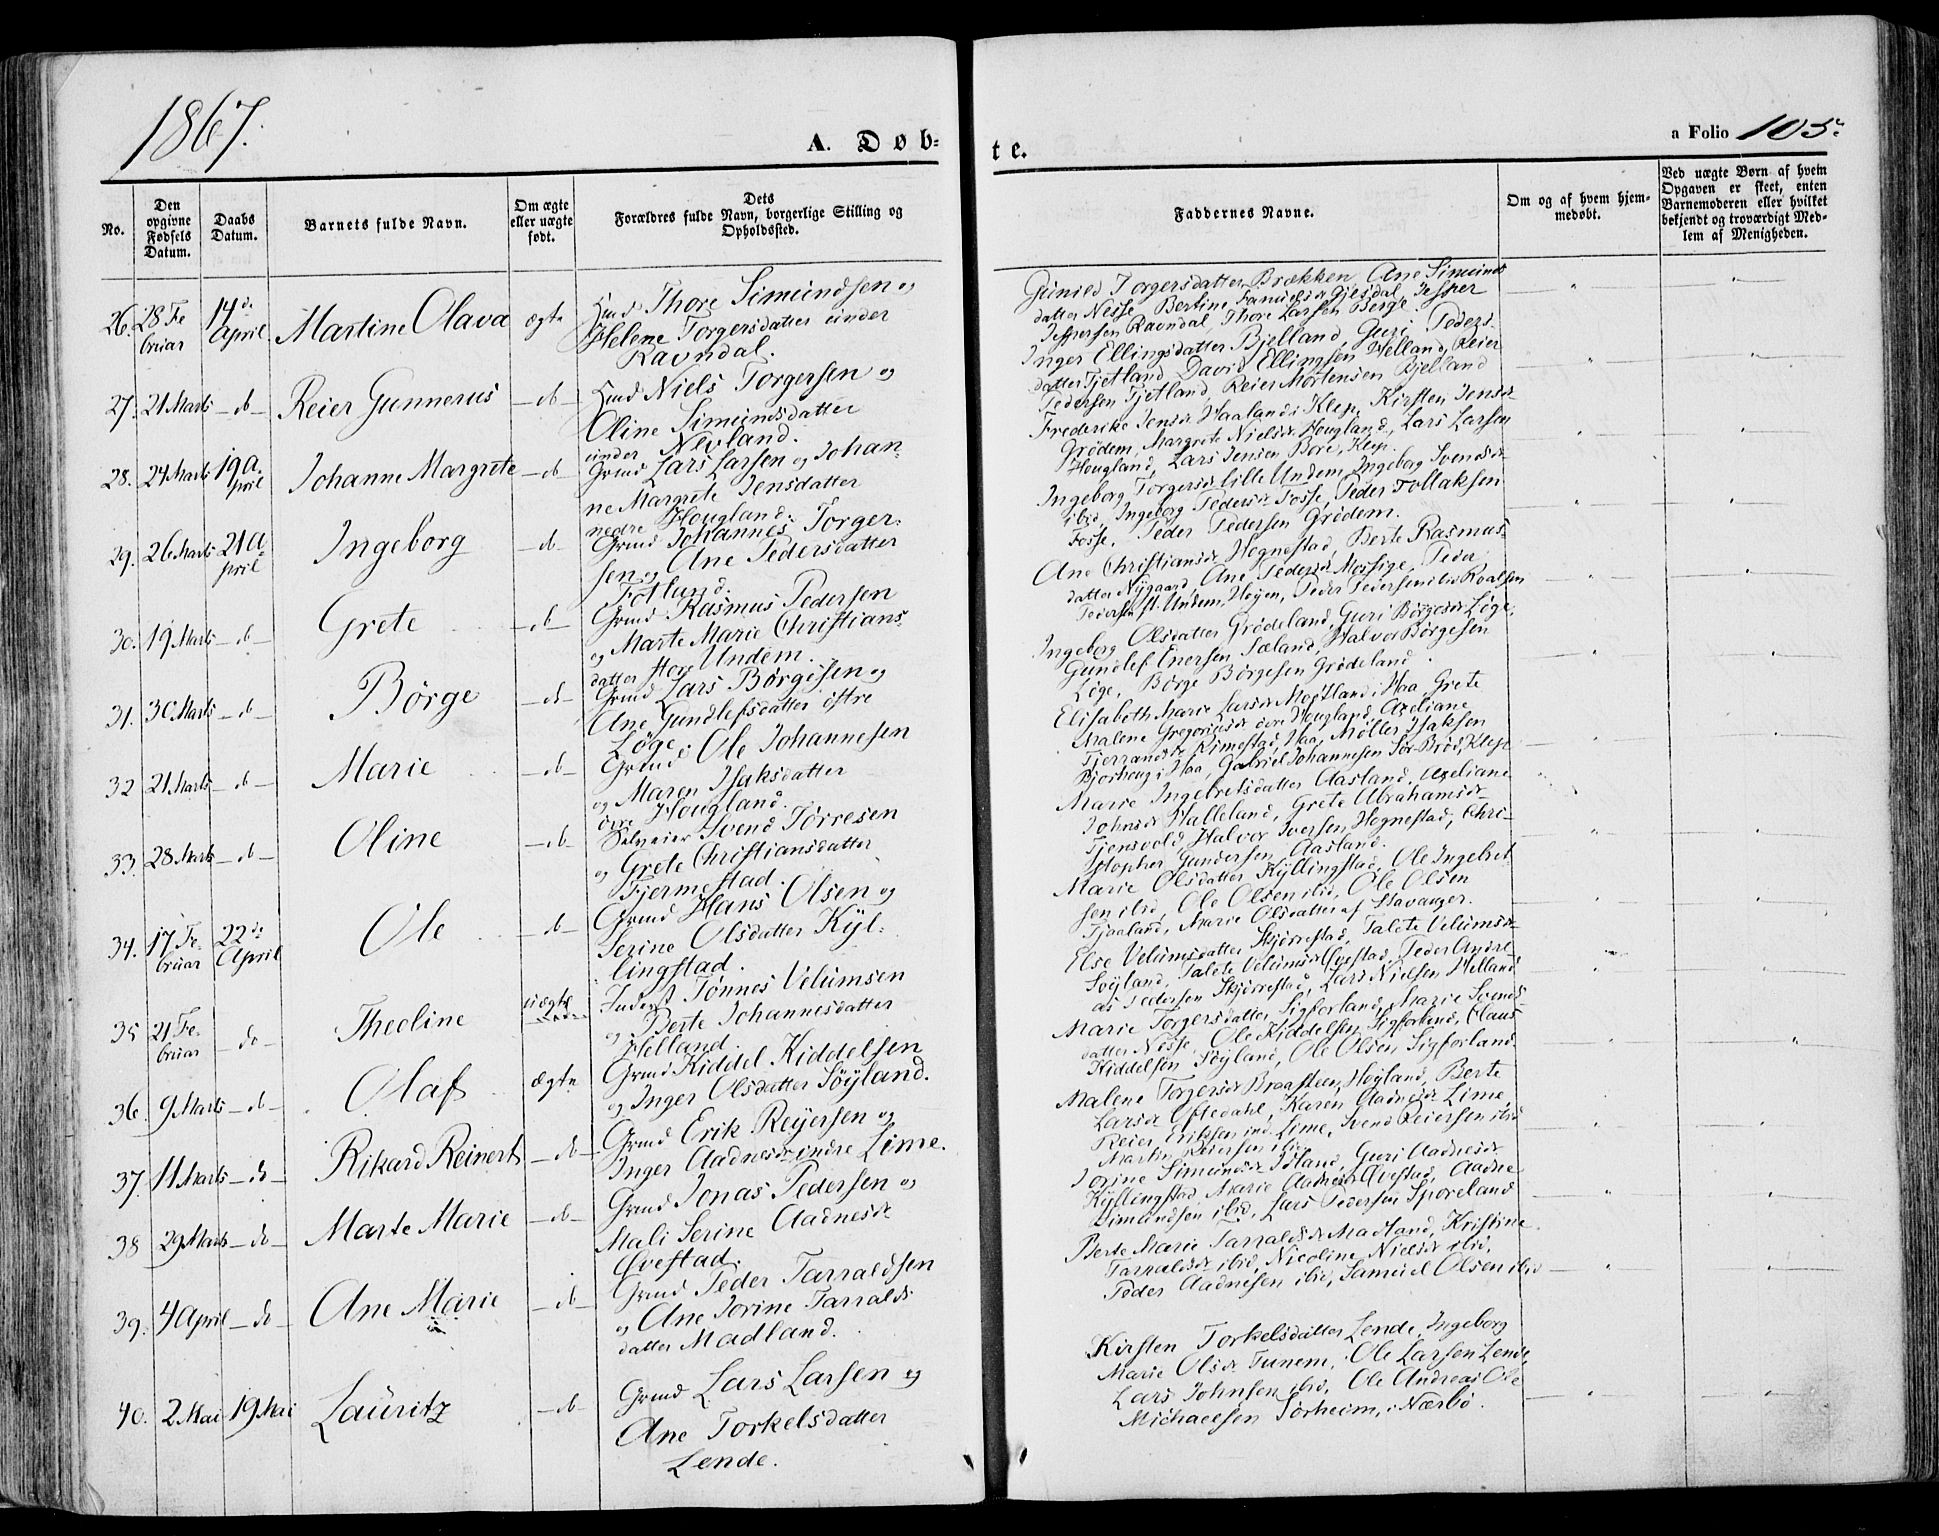 1867.
A. Døb-
te.
a Folio 105.
No.
Den opgivne Fødsels Datum.
Daabs Datum.
Barnets fulde Navn.
Om ægte eller uægte født.
Dets Forældres fulde Navn, borgerlige Stilling og Opholdssted.
Faddernes Navne.
Om og af hvem hjemmedøbt.
Ved uægte Børn af hvem Opgaven er skeet, enten Barnemoderen eller hvilket bekjendt og troværdigt Medlem af Menigheden.
26. 28 Februar 14de April Martine Olava ægte
Thore Simundsen og
Helene Torgersdatter under
Ravndal.
Gunild Torgersdatter Brækken, Ane Simunds
datter Nesse, Bertine Gjesdal, Jesper
Jespersen Ravndal, Thore Larsen Berge.
27. 21 Marts - do - Reier Gunnerus - do -
Niels Torgersen og
Oline Simundsdatter
under Nevland.
Inger Ellingsdatter Bjelland, Guri Peders-
datter Tjetland, David Ellingsen Helland, Reier
Pedersen Tjetland, Reier Mortensen Bjelland
28. 24 Marts 19 April Johanne Margrete - do -
Grmd Lars Larsen og Johan-
ne Margrete Jensdatter
nedre Hougland.
Frederike Jensdr Haaland i Klep, Kirsten Jensdr
Grødem, Margrete Nielsdr Hougland, Lars Larsen
Hougland, Lars Jensen Bore, Klep.
29. 26 Marts 21 April Ingeborg - do -
Grmd Johannes Torger-
sen og Ane Pedersdatter
Fotland.
Ingeborg Torgersdr lille Undem, Ingeborg Svendsdr
ibid, Ingeborg Pedersdr Fosse, Peder Tollaksen
Fosse, Peder Pedersen Grødem.
30. 19 Marts - do - Grete - do -
Grmd Rasmus Pedersen
og Marte Marie Christians-
datter store Undem.
Ane Christiansdr Hognestad, Berte Rasmus-
datter Nygaard, Ane Pedersdr Mossige, Peder
Pedersen st. Undem,
31. 30 Marts - do - Børge - do -
Grmd Lars Børgesen og
Ane Gundlefsdatter østre
Løge.
Ingeborg Olsdatter Grødeland, Guri Børgesdr Løge,
Gundlef Enersen Sæland, Halvor Børgesen
Løge, Børge Børgesen Grødeland.
32 21 Marts - do - Marie - do -
Grmd Ole Johannesen
og Maren Isaksdatter
øvre Hougland.
Elisabeth Marie Larsdr Motland i Haa, Grete
Malene Gregoriusdr øvre Hougland, Axeliane
Tjerrandsdr Rimestad, Haa, Møller Isaksen
Bjorhoug i Haa, Gabriel Johannesen Sør-Brøi, Klep
33. 28 Marts - do - Oline - do -
Selveier Svend Tørresen
og Grete Christiansdatter
Fjermestad.
Marie Ingebretsdatter Aasland, Axeliane
Johnsdr Halleland, Grete Abrahamsdr
Tjensvold, Halvor Iversen Hognestad, Chri-
stopher Gundersen Aasland.
34. 17 Februar 22de April Ole - do -
Grmd Hans Olsen og
Serine Olsdatter Kyl-
lingstad.
Marie Olsdatter Kyllingstad, Ole Ingebret-
sen ibid, Ole Olsen ibid, Ole Olsen
Tjaaland, Marie Olsdatter af Stavanger.
35 21 Februar - do - Theoline uægte
Inderst Tønnes Velumsen
og Berte Johannesdatter
Helland.
Else Velumsdatter Skjørrestad, Talete Velumsdr
Søyland, Talete Velumsdr Øvestad, Peder Andre-
as Pedersen Skjørrestad, Lars Nielsen Helland
36. 9 Marts - do - Olaf ægte
Grmd Kiddel Kiddelsen
og Inger Olsdatter Søyland.
Marie Torgersdatter Sigforland, Marie Svends-
datter Nesse, Ole Kiddelsen Sigforland, Claus
Kiddelsen Søyland, Ole Olsen Sigforland.
37. 11 Marts - do - Rikard Reinert - do -
Grmd Erik Reyersen og
Inger Aadnesdr indre Lime.
Malene Torgersdr Braasteen, Høyland, Berte
Larsdr Oftedahl, Karen Aadnesdr Lime,
Reier Eriksen ind. Lime, Svend Reiersen ibid
Martin Reiersen ibid.
38 29 Marts - do - Marte Marie - do -
Grmd Jonas Pedersen og
Mali Serine Aadnesdr
Øvestad.
Jorine Simundsdr Idland, Guri Aadnesdr
Kyllingstad, Marie Aadnesdr Øvestad, Aadne
Simundsen ibid, Lars Pedersen Sporeland
39. 4 April - do - Ane Marie - do -
Grmd Peder Tarraldsen
og Ane Jorine Tarralds-
datter Madland.
Berte Marie Tarraldsdr Madland, Kristine
Tarraldsdr ibid, Nicoline Nielsdr ibid,
Peder Aadnesen ibid, Samuel Olsen ibid
40. 2 Mai 19 Mai Lauritz - do -
Grmd Lars Larsen og
Ane Torkelsdatter
Lende.
Kirsten Torkelsdatter Lende, Ingeborg
Marie Olsdr Tunem, Ole Larsen Lende,
Lars Johnsen ibid, Ole Andreas Ole
Michaelsen Sørheim, i Nærbø.